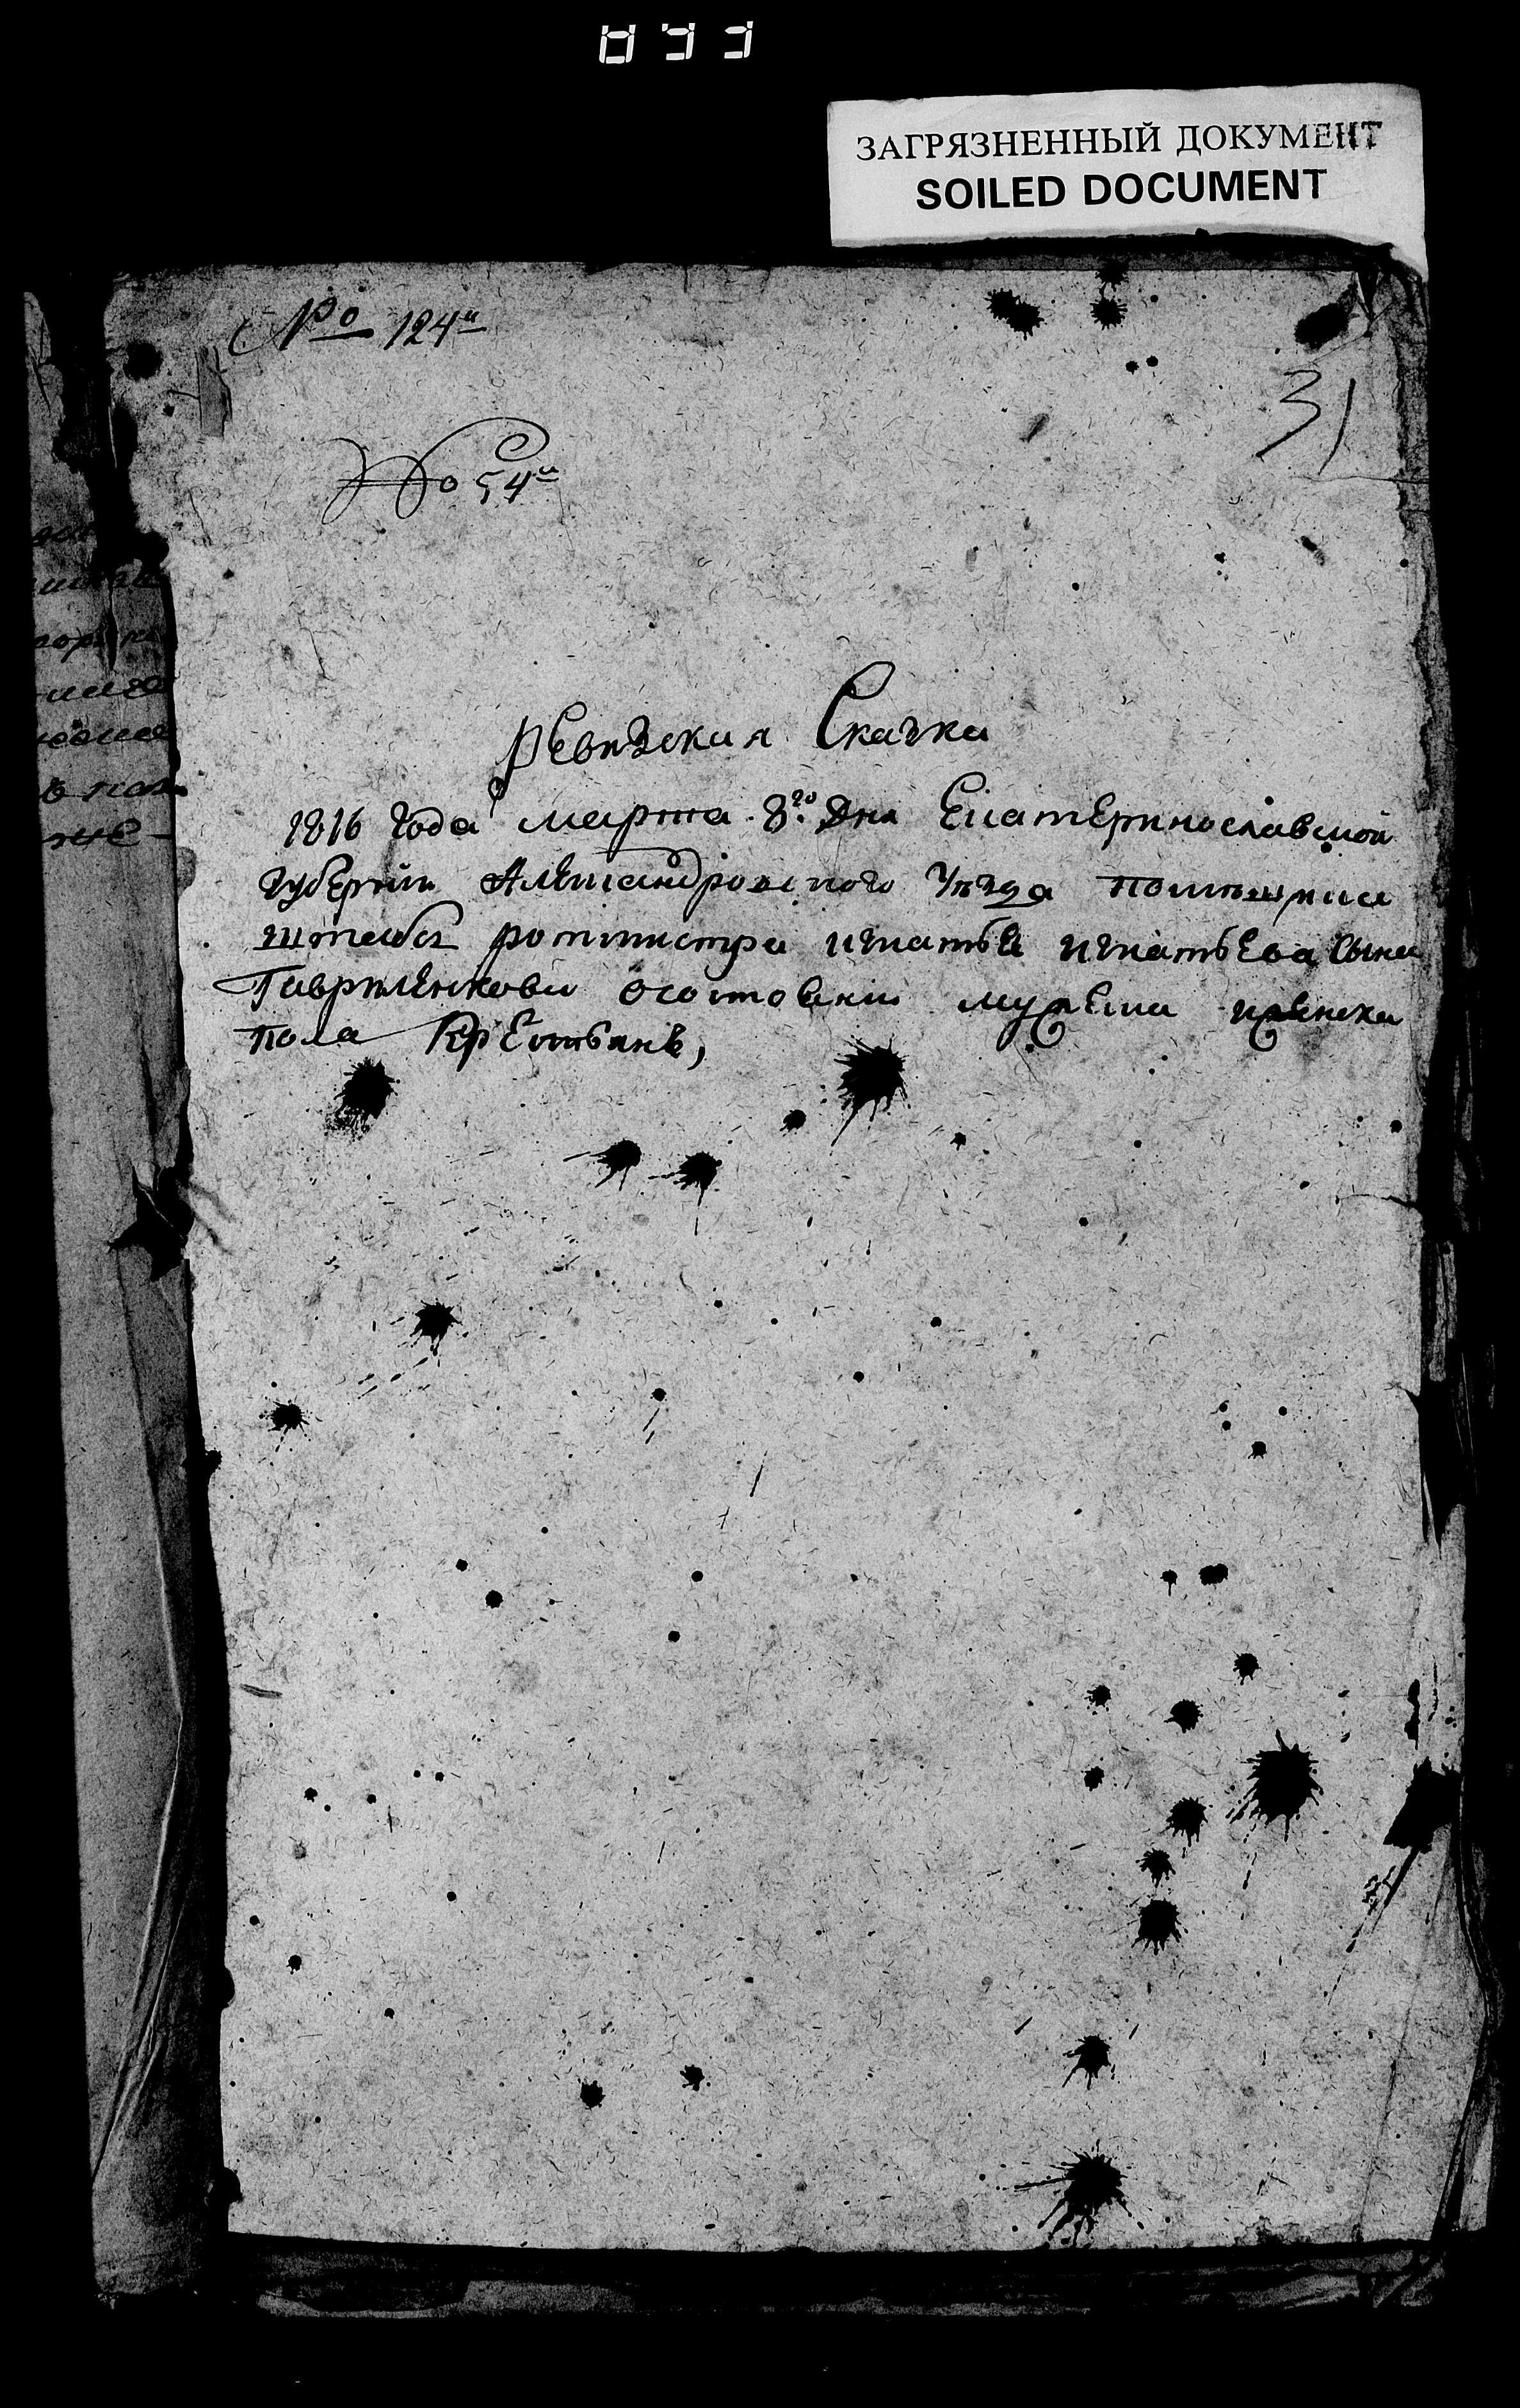 ЗАГРЯЗНЕННЫЙ ДОКУМЕНТ
SOILED DOCUMENT
No 124й
31
No 54й
Ревизская Сказка
1816 года марта 8го дня Екатеринославской
губернии Александровского уѣзда помѣщика
штабъ ротмистра игнатья игнатьева сына
Гавриленкова осостоянии мужеска иженска
пола крестьянъ,